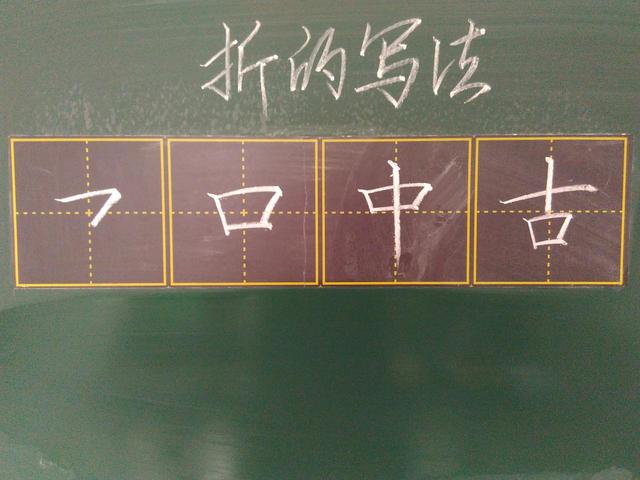 折的写法
㇕口中古